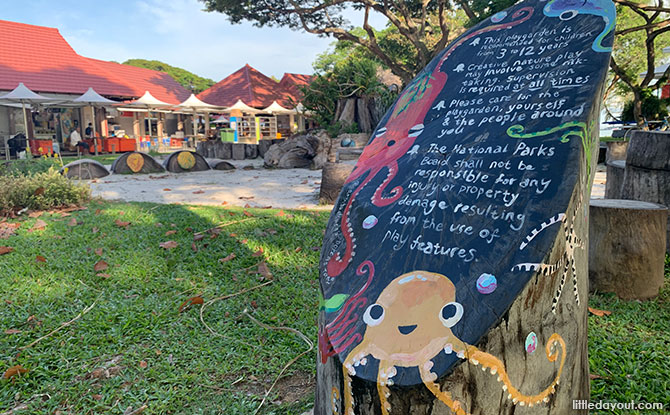 This playgarden is
recommended for children
from 3 to 12 years
Creative nature play
may involve risk
taking. Supervision
is required at all times
Please care for the
playgarden, yourself
& the people around
you
The National Parks
Board shall not be
responsible for any
injury or property
damage resulting
from the use of
play features.
littledayout.com